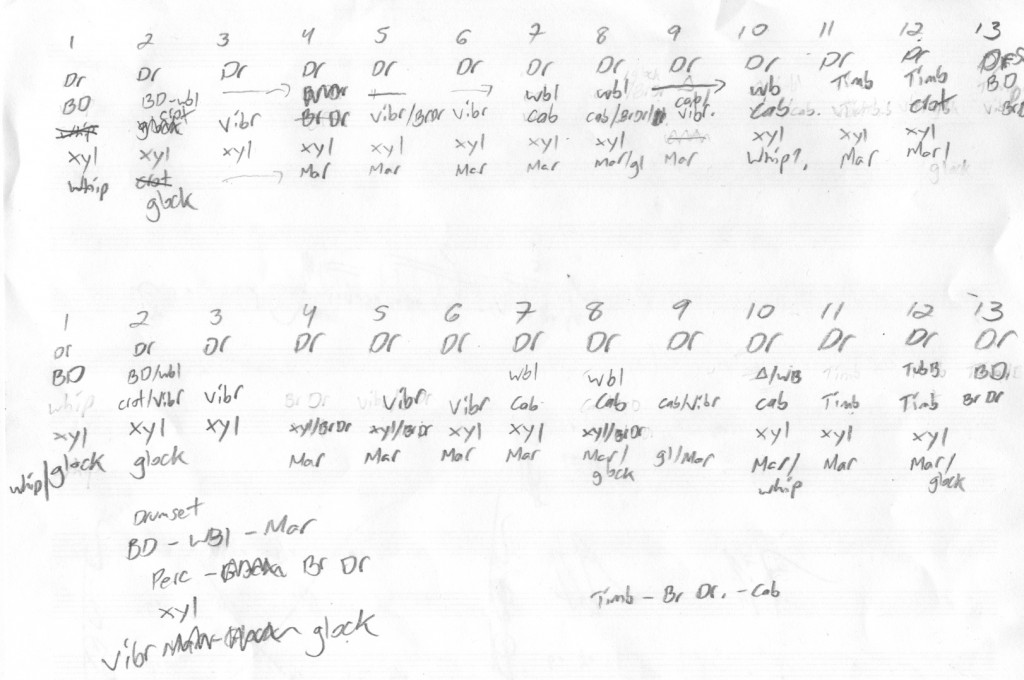 1 2 3 4 5 6 7 8 9 10 11 12 13
Dr Dr Dr Dr Dr Dr Dr Dr Dr Dr Dr Dr
BD BD-wbl wbl wbl Δ wb Timb Timb BD
crot
glock vibr Br Dr vibr/BrDr vibr cab cab/BrDr/ cab/vibr. cab crot
xyl xyl xyl xyl xyl xyl xyl xyl xyl xyl xyl
whip crot Mar Mar Mar Mar Mar/gl Mar whip?. Mar Mar/
glock glock
1 2 3 4 5 6 7 8 9 10 11 12 13
Dr Dr Dr Dr Dr Dr Dr Dr Dr Dr Dr Dr Dr
BD BD/wbl wbl wbl Δ/WB Timb TubB BD
whip crot/Vibr Vibr Br Dr Vibr Vibr Cab Cab cab/Vibr cab Timb Timb Br Dr
xyl xyl xyl xyl/BrDr xyl/BrDr xyl xyl xyl/BrDr xyl xyl xyl
whip/glock glock Mar Mar Mar Mar Mar/ gl/Mar Mar/ Mar Mar/
glock whip glock
Drumset
BD - WBl - Mar
Perc - Br Dr
Timb - Br Dr. - Cab
xyl
Vibr glock